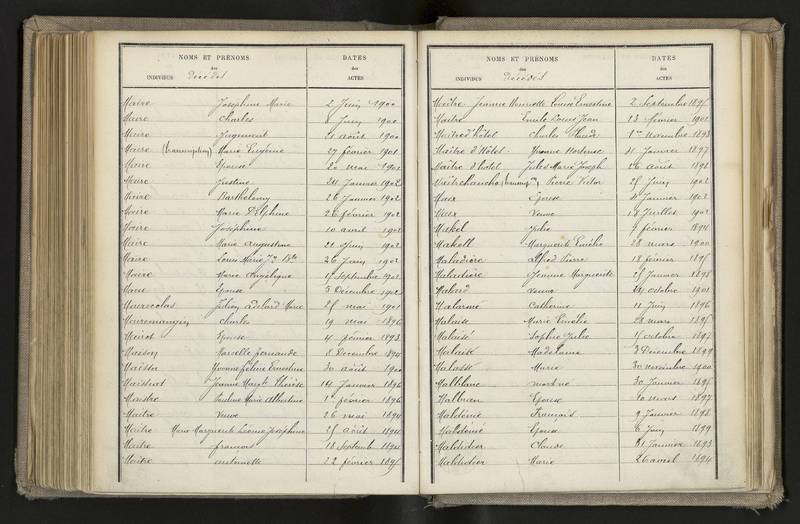 NOMS ET PRÉNOMS
DATES
des
des
INDIVIDUS Décédés
ACTES
Maire Joséphine Marie 2 Juin 1900
Maire Charles Juin 1900
Maire Jugement 21 août 1900
Maire (transcription) Marie Eugénie 27 février 1901
Maire Epouse 20 mai 1901
Maire Justine 24 Janvier 1902
Maire Barthelemy 26 Janvier 1902
Maire Marie Delphine 26 février 1902
Maire Joséphine 10 avril 1902
Maire Marie Augustine 21 Juin 1902
Maire Louis Marie Jn Bte 26 Juin 1902
Maire Marie Angélique 17 Septembre 1902
Maire Epouse 5 Décembre 1902
Mairicolas Julien Adelard Marie 25 mai 1901
Mairemangin Charles 19 mai 1896
Mairot Epouse 4 février 1893
Maison Marcelle fernande 8 Décembre 1894
Maisson Yvonne Céline Ernestine 30 août 1900
Maistriat Jeanne Thérèse 14 Janvier 1896
Maistre Pauline Marie Albertine 1er février 1896
Maitre Veuve 26 mai 1894
Maitre Marie Marguerite Léonie Joséphine 25 août 1894
Maitre françois 18 Septemb 1894
Maitre antoinette 22 février 1895
NOMS ET PRÉNOMS
DATES
des
des
INDIVIDUS Décédés
ACTES
Maître Jeanne Henriette Louise Ernestine 2 Septembre 1895
Maitre Emile Louis Jean 13 février 1901
Maitre d'hôtel Charles Claude 1er novembre 1893
Maître d'Hôtel Yvonne Hortense 11 Janvier 1897
Maître d'hôtel Jules Marie Joseph 26 août 1898
Maitrehanche Pierre Victor 25 Juin 1902
Maix Epouse 4 Janvier 1902
Maix Veuve 18 Juillet 1902
Makel Julie 9 février 1894
Makell Marguerite Emélie 28 mars 1900
Maladière Alfred Pierre 18 février 1895
Maladière Jeanne Marguerite 25 Janvier 1898
Malard Veuve 24 octobre 1901
Malarmé Catherine 11 Juin 1896
Malaise Marie Emélie 28 mars 1895
Malaisé Sophie Julie 15 octobre 1897
Malaisé Madelaine 3 Décembre 1899
Malassé Marie 30 novembre 1900
Malblanc martine 30 Janvier 1895
Malbran Epouse 20 mars 1897
Maldémé François 9 Janvier 1898
Maldémé Epouse 6 Juin 1899
Maldidier Claude 31 Janvier 1893
Maldidier Marie 26 avril 1894